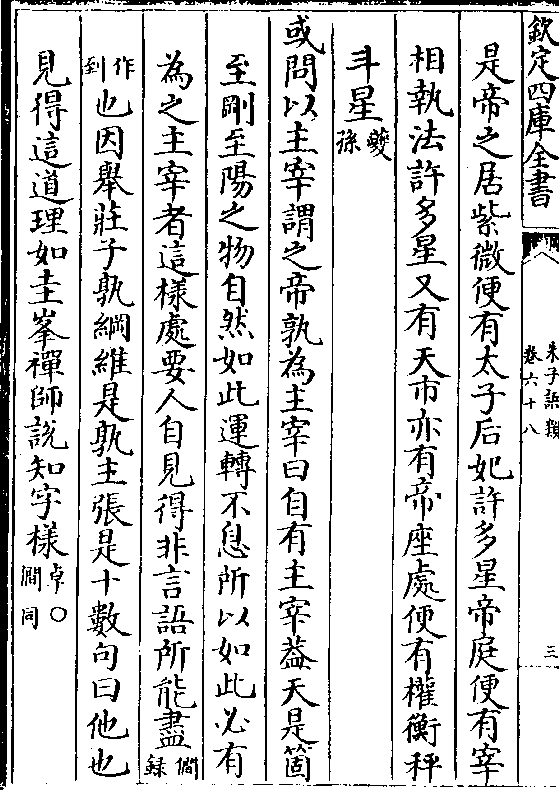 欽定四庫全書
朱子語類
卷六十八
三
是帝之居紫微便有太子后妃許多星帝庭便有宰
相執法許多星又有天市亦有帝座處便有權衡秤
斗星夔孫
或問以主宰謂之帝孰為主宰曰自有主宰葢天是箇
至剛至陽之物自然如此運轉不息所以如此必有
為之主宰者這樣處要人自見得非言語所能盡僩錄
作到也因舉莊子孰綱維是孰主張是十數句曰他也
見得這道理如圭峯禪師說知字樣卓〇僩同